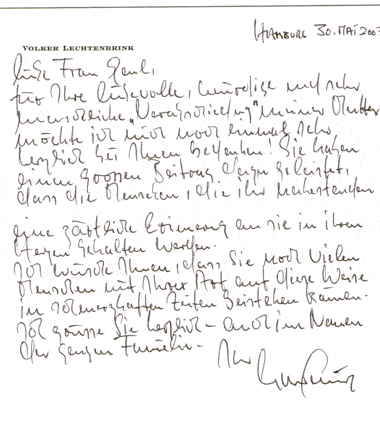 HAMBURG 30. MAI 200
VOLKER LECHTENBRINK
Liebe Frau
für Ihre liebevolle, würdige und sehr
menschliche „Verabschiedung" meiner Mutter
möchte ich mich noch einmal sehr
herzlich bei Ihnen bedanken! Sie haben
einen grossen Beitrag dazu geleistet,
dass die Menschen, die ihr nahestanden
eine zärtliche Erinnerung an sie in ihrem
Herzen behalten werden.
Ich wünsche Ihnen, dass Sie noch vielen
Menschen mit Ihrer Art auf diese Weise
in schmerzhaften Zeiten beistehen können.
Ich grüsse Sie herzlich – auch im Namen
der ganzen Familie.
Ihr